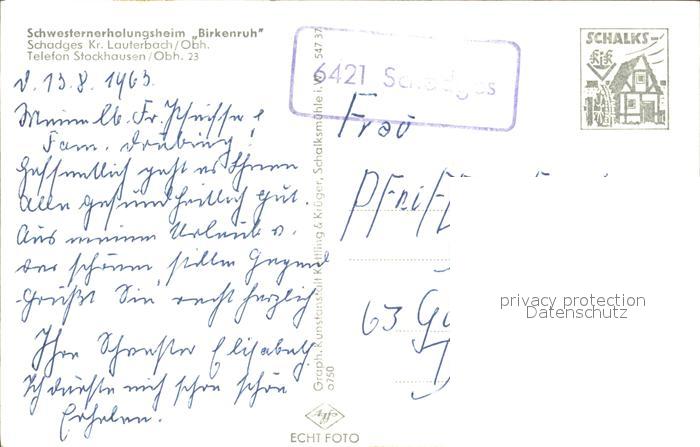 Schwesternerholungsheim „Birkenruh"
Schadges Kr. Lauterbach/Obh.
Telefon Stockhausen/Obh. 23
d. 13.8.1963.
Meine lb. Fr. Pfeiffer
Fam.
Hoffentlich geht es Ihnen
allen gesundheitlich gut.
Aus meinem Urlaub u.
der schönen, stillen Gegend
grüßt Sie recht herzlich
Ihre Schwester Elisabeth.
Ich durfte mich schon schön
Erholen.
Graph. Kunstanstalt Kettling & Krüger, Schalksmühle i. W. 547 37
0750
ECHT FOTO
6421 Schadges
SCHALKS-
KJK
Frau
Pfeiff
63
privacy protection
Datenschutz